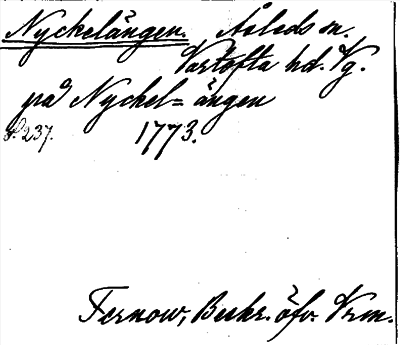 Nyckelängen. Åsleds sn.
Vartofta hd. Vg.
på Nyckel=ängen
S. 237. 1773.
Fernow, Beskr. öfv. Vrm.